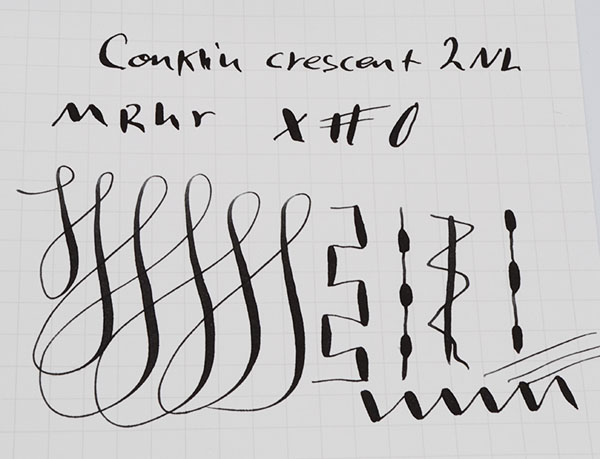 Conklin crescent 2NL
MRhr X#0